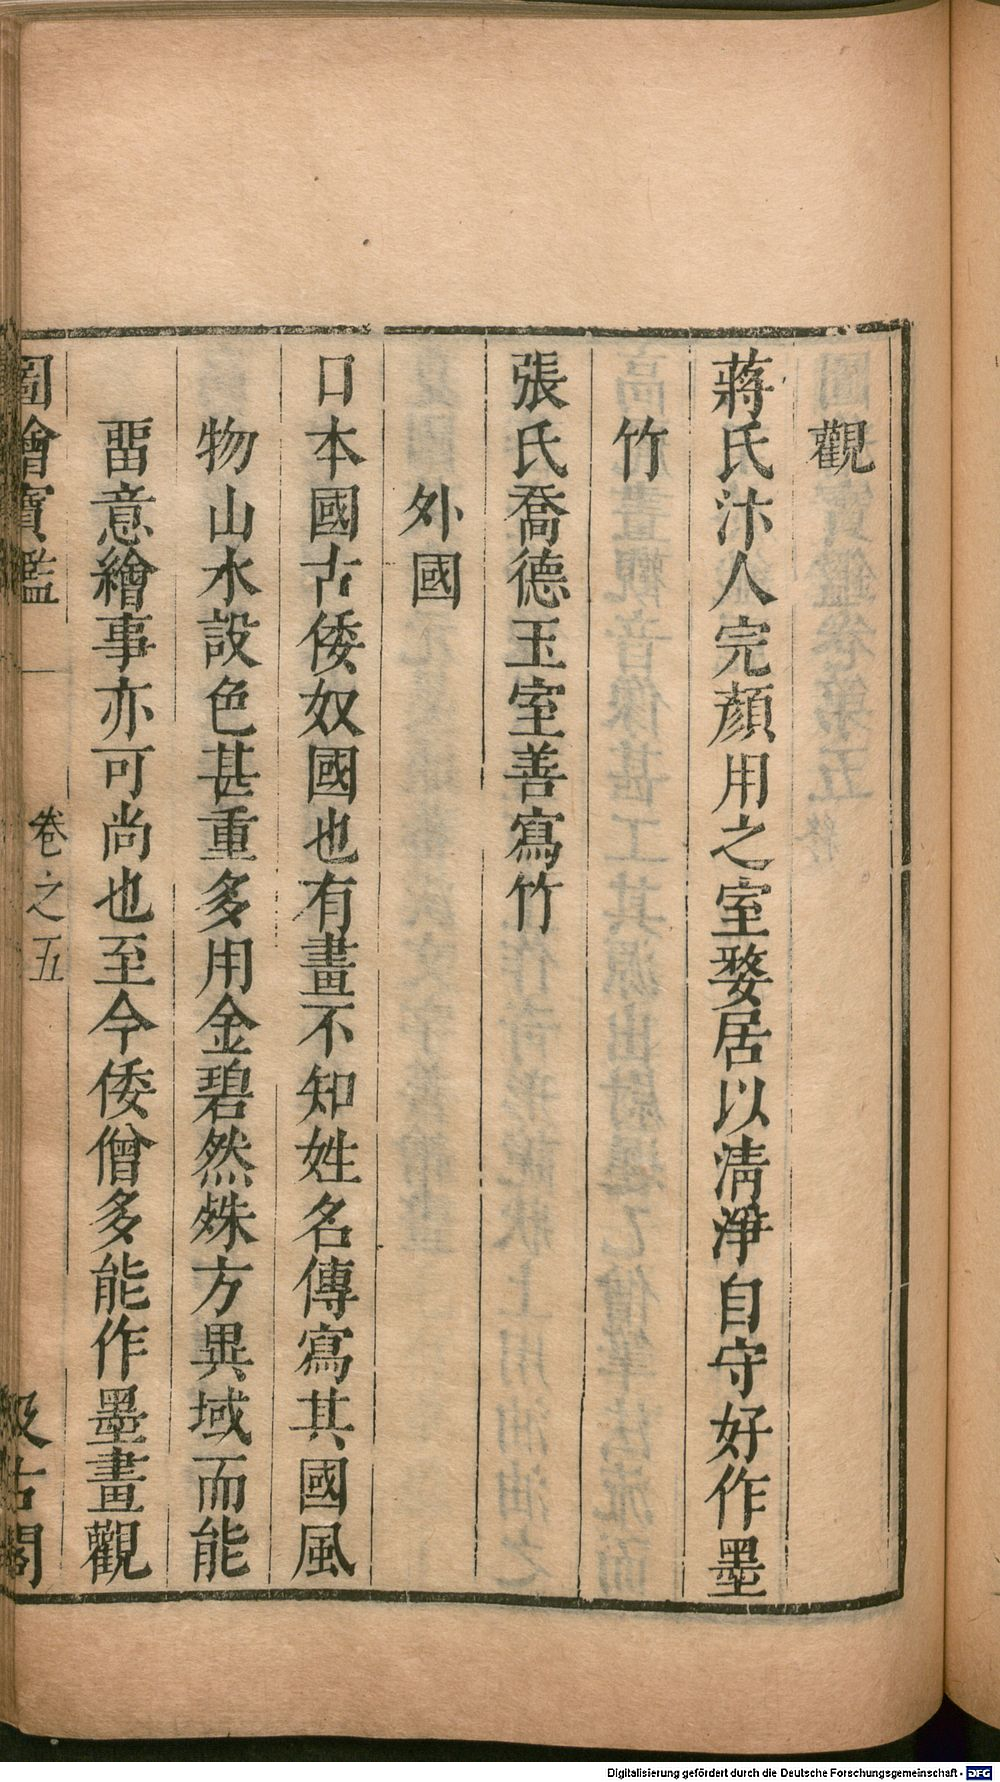 觀
蔣氏汴人完顏用之室嫠居以清淨自守好作墨
竹
張氏喬德玉室善寫竹
外國
日本國古倭奴國也有畫不知姓名傳寫其國風
物山水設色甚重多用金碧然殊方異域而能
畱意繪事亦可尚也至今倭僧多能作墨畫觀
圖繪寶鑑 卷之五 汲古閣
Digitalisierung gefördert durch die Deutsche Forschungsgemeinschaft - DFG